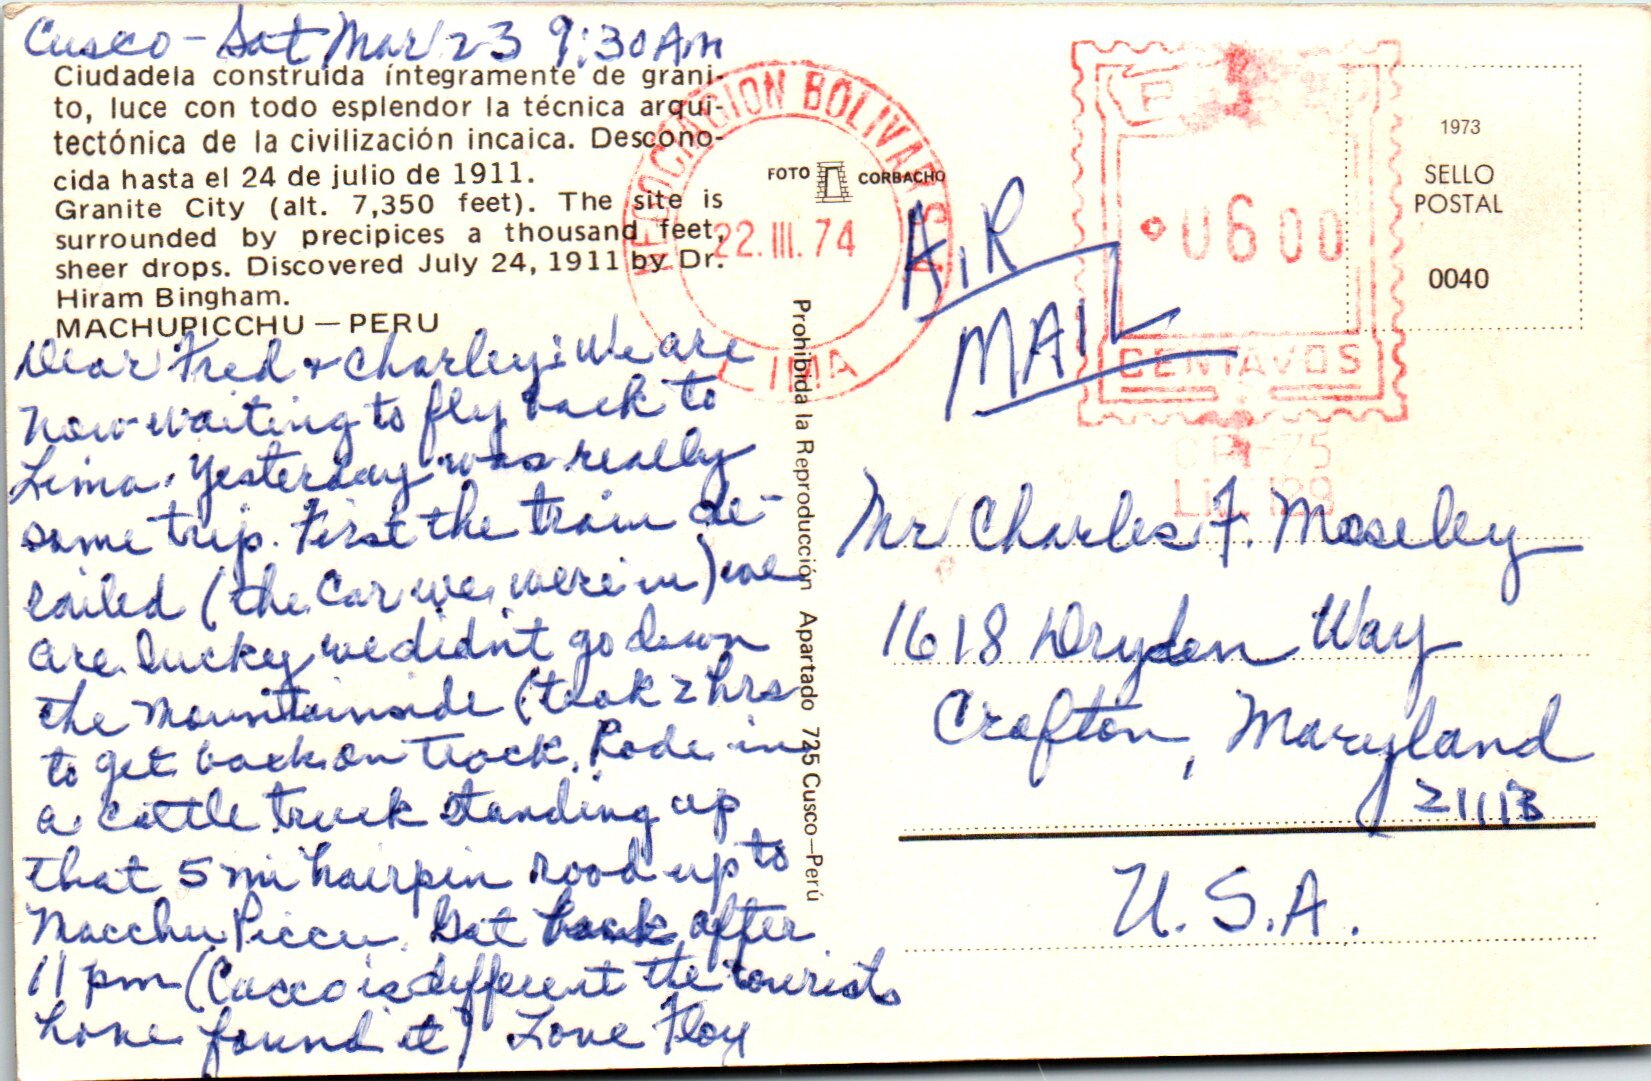 Cusco - Sat Mar 23 9:30 AM
Ciudadela construída íntegramente de grani-
to, luce con todo esplendor la técnica arqui-
tectónica de la civilización incaica. Descono-
cida hasta el 24 de julio de 1911.
Granite City (alt. 7,350 feet). The site is
surrounded by precipices a thousand feet,
sheer drops. Discovered July 24, 1911 by Dr.
Hiram Bingham.
MACHUPICCHU — PERU
Dear Fred & Charley: We are
now waiting to fly back to
Lima. Yesterday was really
some trip. First the train de-
railed (the car we were in) we
are lucky we didn't go down
the mountainside (took 2 hrs
to get back on track. Rode in
a cattle truck standing up
that 5 mi hairpin road up to
Macchu Piccu. Got back after
11 pm (Cusco is different the tourists
have found it) Love Floy
FOTO CORBACHO
Prohibida la Reproducción Apartado 725 Cusco—Perú
BOLIVAR
22.III.74
LIMA
AIR
MAIL
0600
CENTAVOS
1973
SELLO
POSTAL
0040
Mr Charles F. Moseley
1618 Dryden Way
Crofton, Maryland
21113
U.S.A.